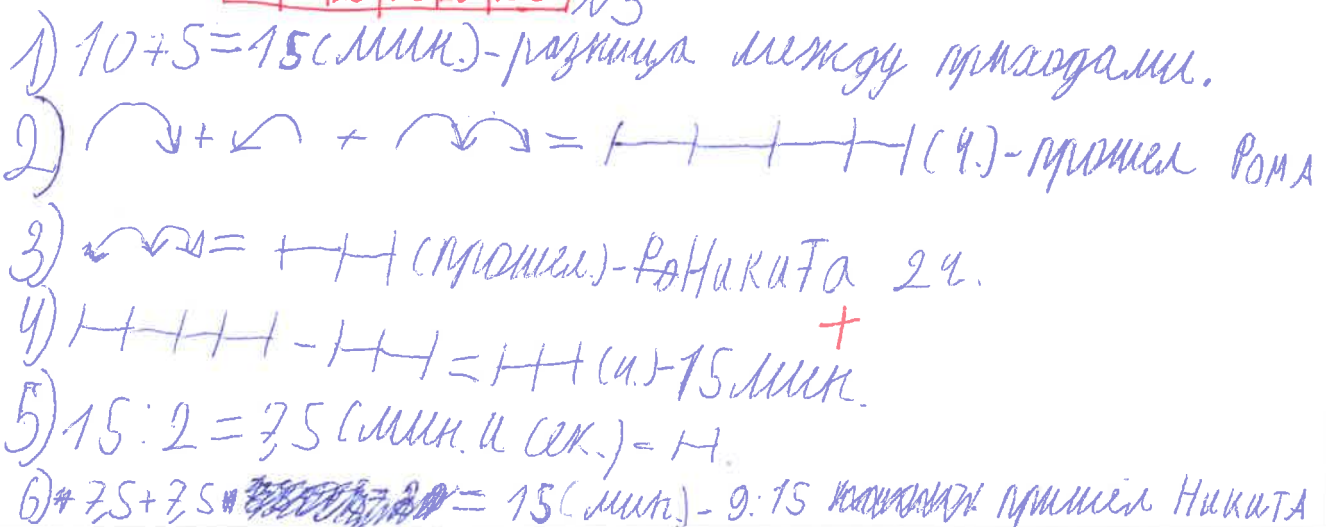 №3
1) 10+5=15(мин.)-разница между приходами.
2) + + = (ч.)-прошел Рома
3) = (прошел)-Никита 2ч.
4) - = (ч.)-15мин.
5) 15:2=7,5(мин. и сек.)-
6) 7,5+7,5 = 15(мин.)-9:15 пришел Никита